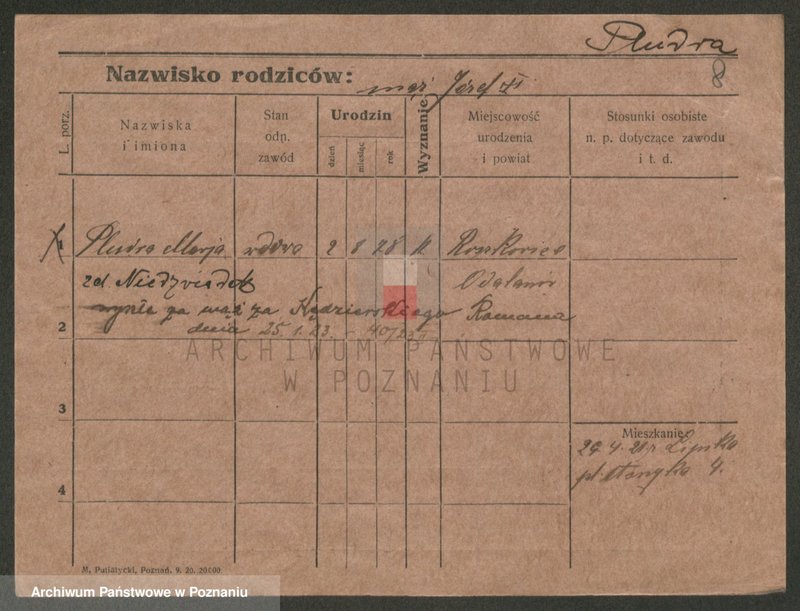 Pludra
8
Nazwisko rodziców: mąż Józef
L. porz.
Nazwiska i imiona
Stan odn. zawód
Urodzin
dzień
miesiąc
rok
Wyznanie
Miejscowość urodzenia i powiat
Stosunki osobiste n. p. dotyczące zawodu i t. d.
1 Pludra Marja wdowa 2 8 28
zd Niedzwiedek Odalanów
za mąż za Kędzierskiego Romana
2 dnia 25.1.23.
3
Mieszkanie
4
ARCHIWUM PAŃSTWOWE
W POZNANIU
M. Putiatycki, Poznań. 9. 20. 20.000.
Archiwum Państwowe w Poznaniu